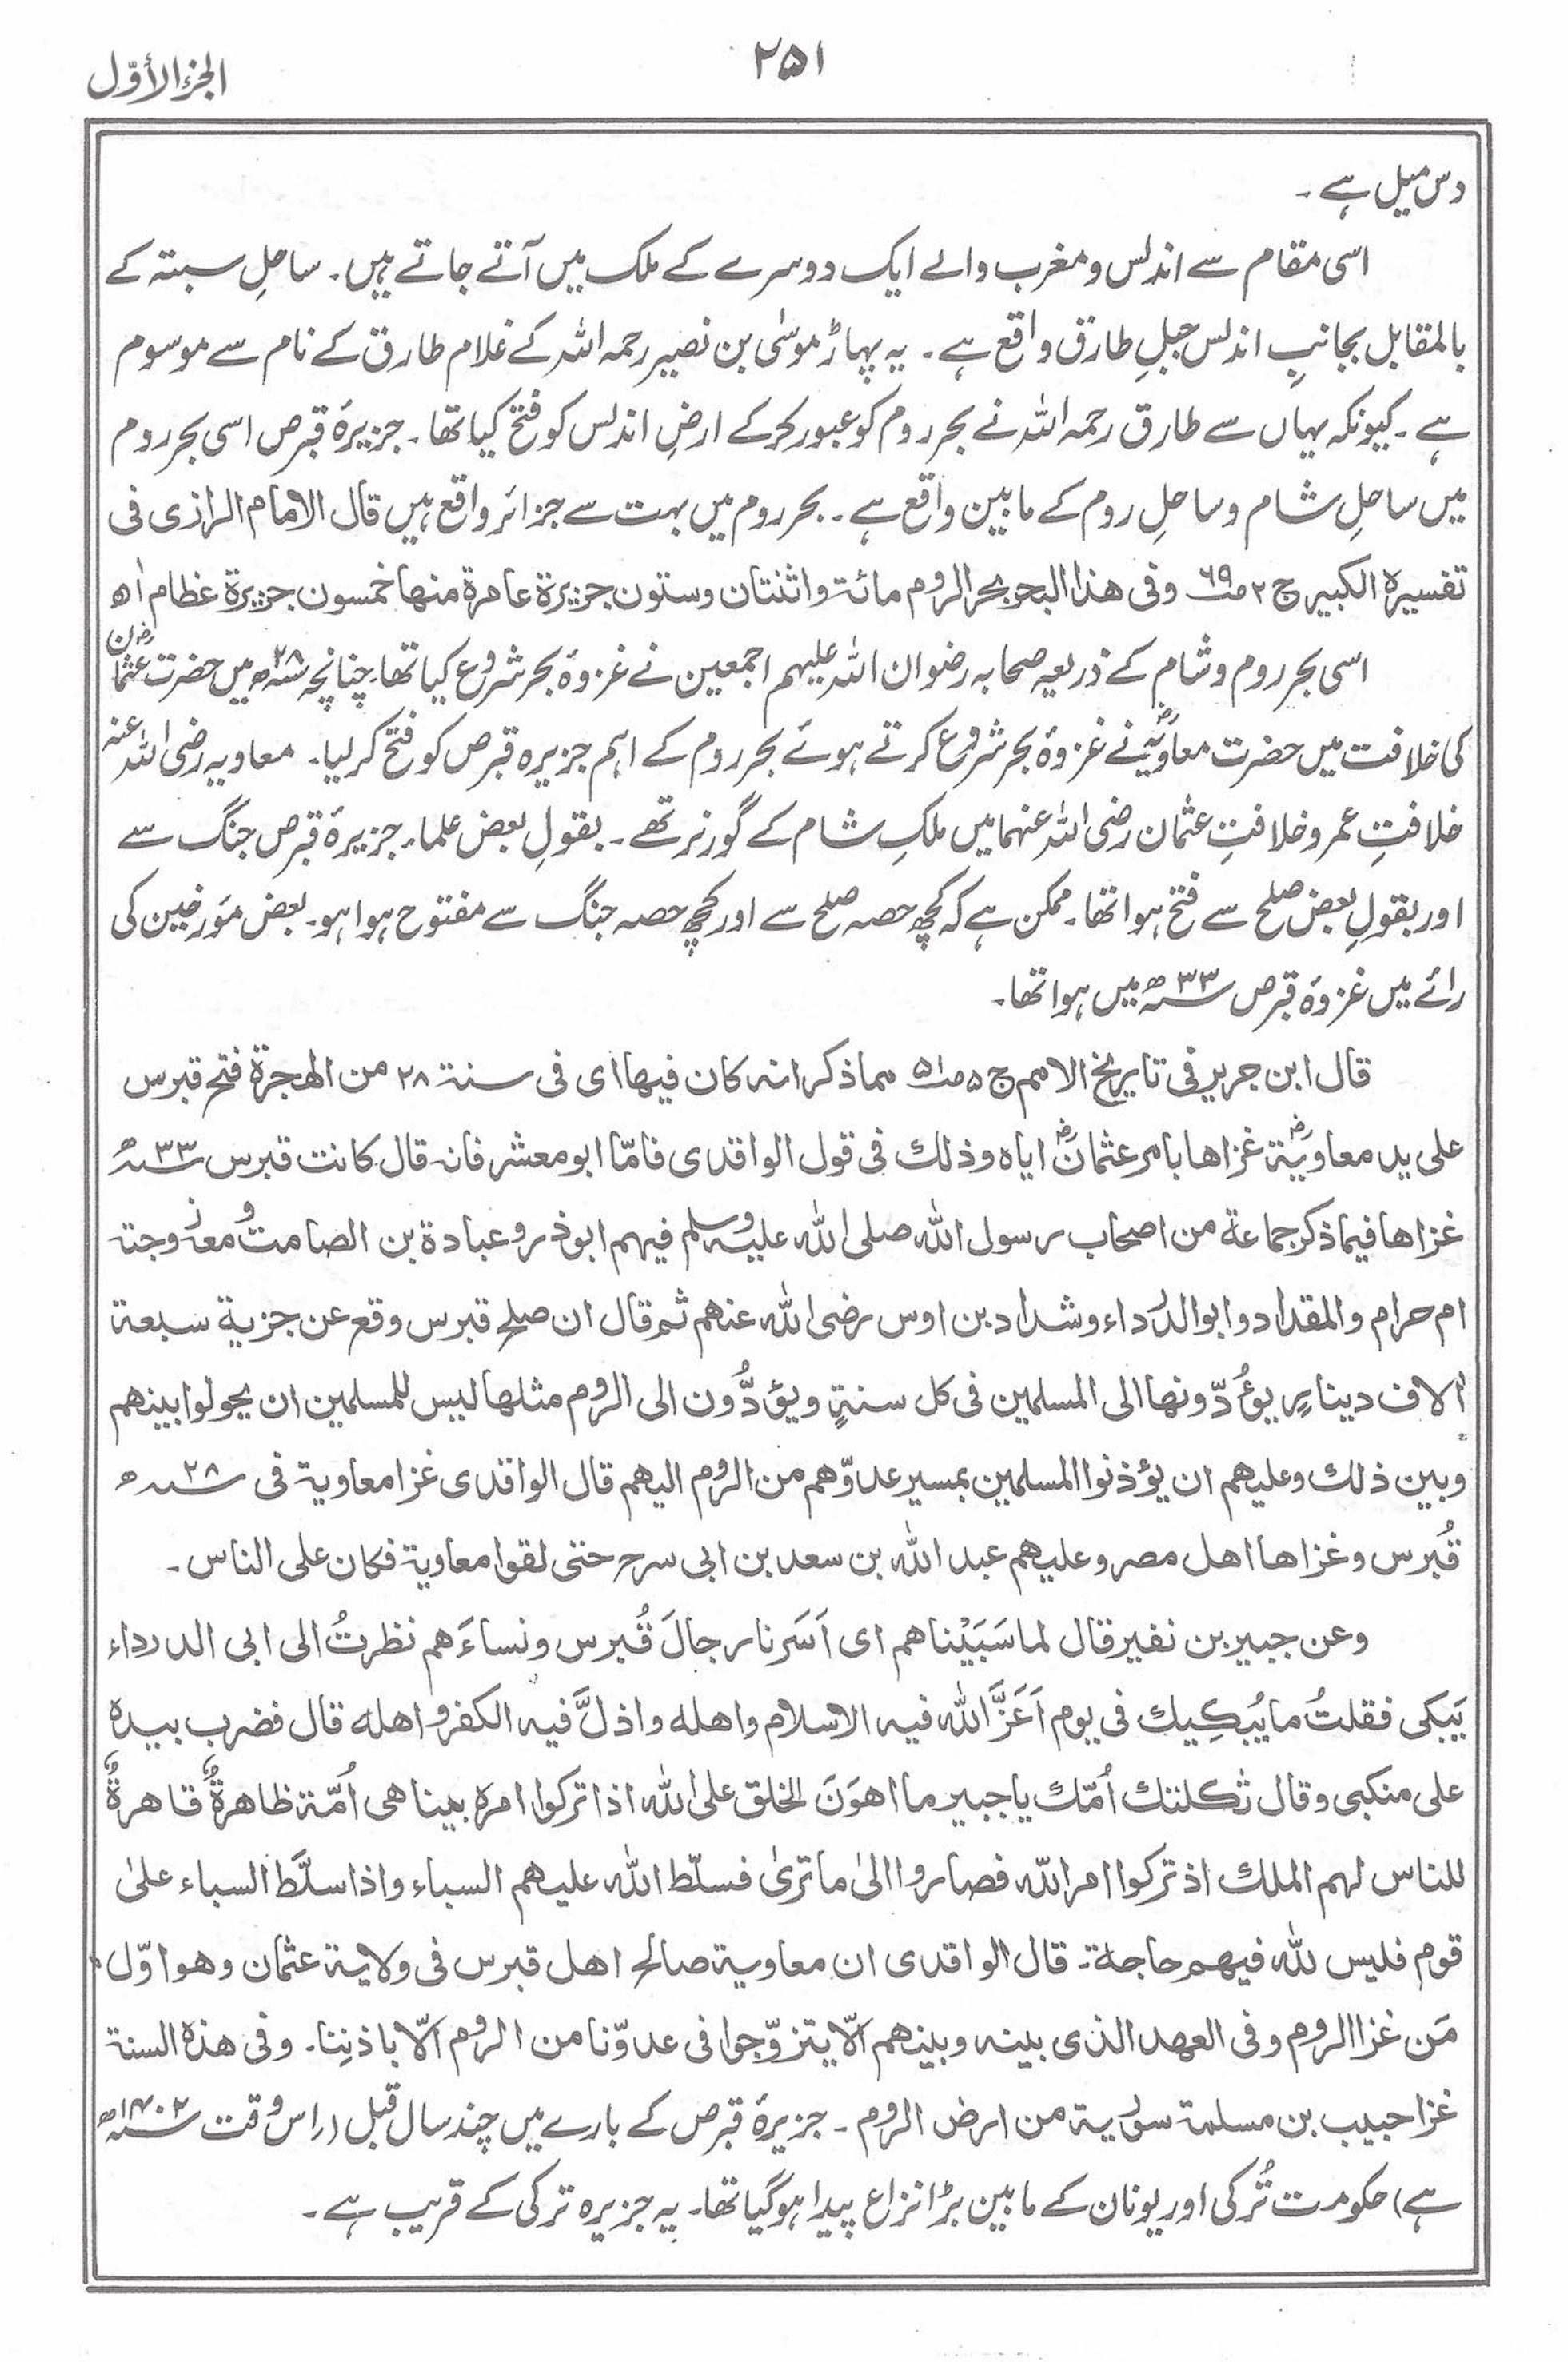 ۲۵۱
الجزء الأوّل
دس میل ہے۔
اسی مقام سے اندلس و مغرب والے ایک دوسرے کے ملک میں آتے جاتے ہیں۔ ساحلِ سبتہ کے
بالمقابل بجانبِ اندلس جبلِ طارق واقع ہے۔ یہ پہاڑ موسٰی بن نصیر رحمہ اللہ کے غلام طارق کے نام سے موسوم
ہے۔ کیونکہ یہاں سے طارق رحمہ اللہ نے بحر روم کو عبور کرکے ارضِ اندلس کو فتح کیا تھا۔ جزیرۂ قبرص اسی بحر روم
میں ساحلِ شام و ساحلِ روم کے مابین واقع ہے۔ بحر روم میں بہت سے جزائر واقع ہیں قال الامام الرازی فی
تفسیرہ الکبیر ج ۲ ص۶۹ وفی ھذا البحر بحر الروم مائۃ واثنتان وستون جزیرۃ عامرۃ منھا خمسون جزیرۃ عظام اھ
اسی بحر روم و شام کے ذریعہ صحابہ رضوان اللہ علیہم اجمعین نے غزوۂ بحر شروع کیا تھا۔ چنانچہ ۲۸ھ میں حضرت عثمانؓ
کی خلافت میں حضرت معاویہؓ نے غزوۂ بحر شروع کرتے ہوئے بحر روم کے اہم جزیرہ قبرص کو فتح کر لیا۔ معاویہ رضی اللہ عنہ
خلافتِ عمر و خلافتِ عثمان رضی اللہ عنہما میں ملکِ شام کے گورنر تھے۔ بقولِ بعض علماء جزیرۂ قبرص جنگ سے
اور بقولِ بعض صلح سے فتح ہوا تھا۔ ممکن ہے کہ کچھ حصہ صلح سے اور کچھ حصہ جنگ سے مفتوح ہوا ہو۔ بعض مؤرخین کی
رائے میں غزوۂ قبرص ۳۳ھ میں ہوا تھا۔
قال ابن جریر فی تاریخ الامم ج ۵ ص۵۱ مما ذکر انہ کان فیھا ای فی سنۃ ۲۸ من الھجرۃ فتح قبرس
علی ید معاویۃؓ غزاھا بامر عثمانؓ ایاہ وذلك فی قول الواقدی فامّا ابو معشر فانہ قال کانت قبرس ۳۳ھ
غزاھا فیما ذکر جماعۃ من اصحاب رسول اللہ صلی اللہ علیہ وسلم فیھم ابوذر وعبادۃ بن الصامت ومعہ زوجتہ
ام حرام والمقداد وابو الدرداء وشداد بن اوس رضی اللہ عنھم ثم قال ان صلح قبرس وقع عن جزیۃ سبعۃ
اٰلاف دینارٍ یؤُدّونھا الی المسلمین فی کل سنۃٍ ویؤدُّون الی الروم مثلھا لیس للمسلمین ان یحولوا بینھم
وبین ذلك وعلیھم ان یؤذنوا المسلمین بمسیر عدوّھم من الروم الیھم قال الواقدی غزا معاویۃ فی ۲۸ھ
قُبرس وغزاھا اھل مصر وعلیھم عبد اللہ بن سعد بن ابی سرح حتی لقوا معاویۃ فکان علی الناس۔
وعن جبیر بن نفیر قال لما سَبَیْناھم ای اَسَرنا رجالَ قُبرس ونساءَھم نظرتُ الی ابی الدرداء
یَبکی فقلتُ ما یُبکِیك فی یوم اَعَزَّ اللہ فیہ الاسلام واھلہ واذلَّ فیہ الکفر واھلہ قال فضرب بیدہ
علی منکبی وقال ثکلتك اُمّك یا جبیر ما اھوَنَ الخلق علی اللہ اذا ترکوا امرہ بینا ھی اُمّۃ ظاھرۃٌ قاھرۃٌ
للناس لھم الملك اذ ترکوا امر اللہ فصاروا الیٰ ما تریٰ فسلّط اللہ علیھم السباء واذا سلّط السباء علیٰ
قوم فلیس للہ فیھم حاجۃ۔ قال الواقدی ان معاویۃ صالح اھل قبرس فی ولایۃ عثمان وھو اوّل
مَن غزا الروم وفی العھد الذی بینہ وبینھم الّا یتزوّجوا فی عدوّنا من الروم الّا باذنِنا۔ وفی ھذہ السنۃ
غزا حبیب بن مسلمۃ سوریۃ من ارض الروم۔ جزیرۂ قبرص کے بارے میں چند سال قبل (اس وقت ۱۴۰۲ھ
ہے) حکومت تُرکی اور یونان کے مابین بڑا نزاع پیدا ہوگیا تھا۔ یہ جزیرہ ترکی کے قریب ہے۔